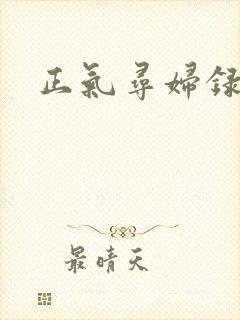 正氣尋婦録
最晴天